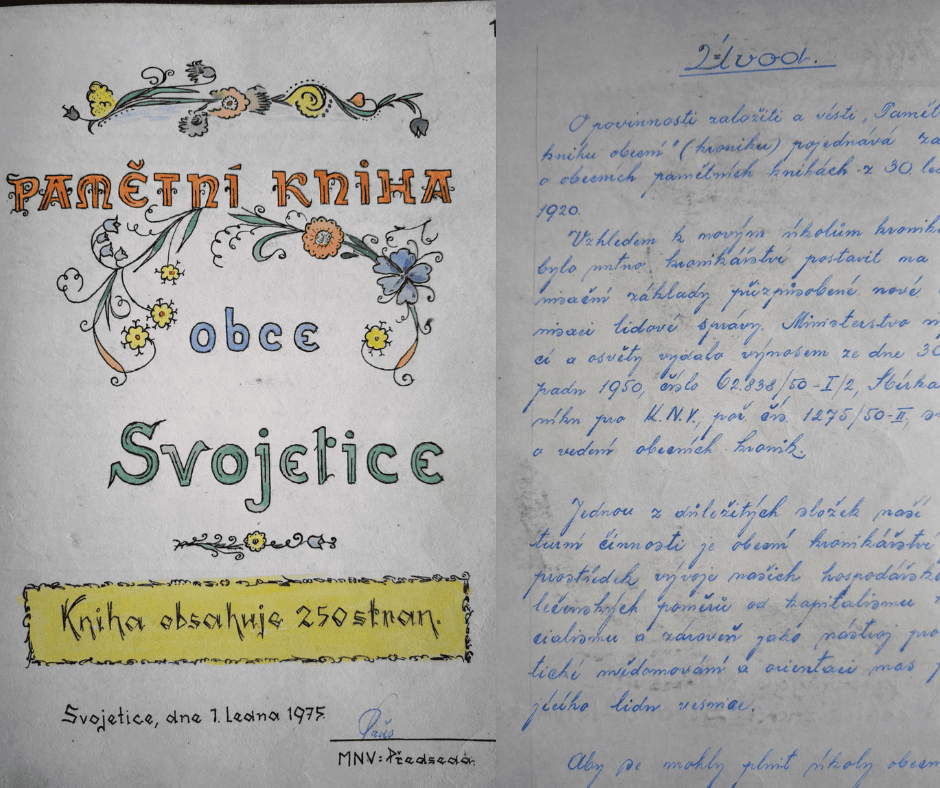 1
PAMĚTNÍ KNIHA
obce
Svojetice
Kniha obsahuje 250 stran.
Svojetice, dne 1. Ledna 1975.
MNV: Předseda.
Úvod.
O povinnosti založiti a vésti „Památ
knihu obecní" (kroniku) pojednává zá
o obecních pamětních knihách z 30. led
1920.
Vzhledem k novým úkolům kronik
bylo nutno kronikářství postavit na
nisační základy přizpůsobené nové
nisaci lidové správy. Ministerstvo
cí a osvěty vydalo výnosem ze dne 30
padu 1950, číslo 62.838/50-I/2, Sbírka
níku pro K.N.V., poř. čís. 1275/50-II, s
o vedení obecních kronik.
Jednou z důležitých složek naší
turní činnosti je obecní kronikářství
prostředek vývoje našich hospodářsk
lečenských poměrů od kapitalismu
cialismu a zároveň jako nástroj pro
tické uvědomování a orientaci mas p
jícího lidu vesnice.
Aby se mohly plnit úkoly obecn